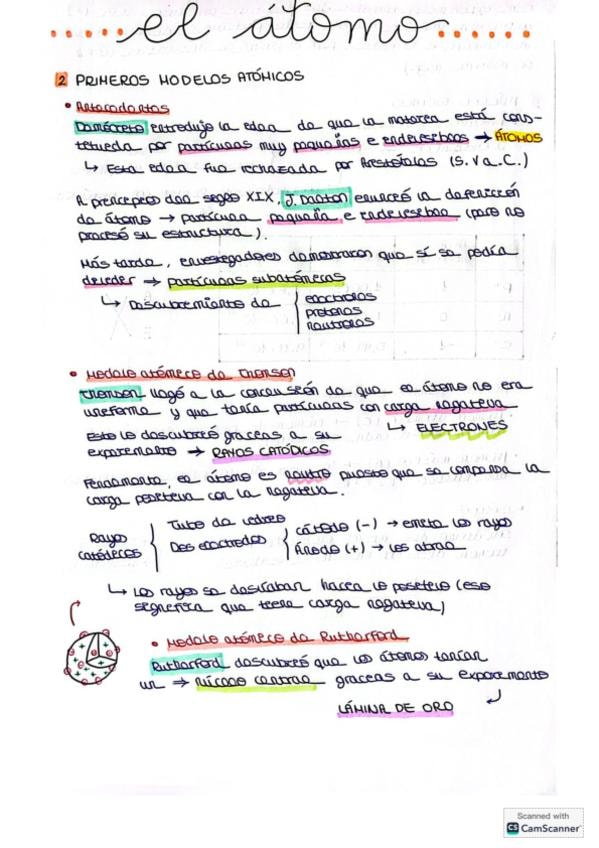 el átomo
2 PRIMEROS MODELOS ATÓMICOS
• Antecedentes
Demócrito introdujo la idea de que la materia está cons-
tituida por partículas muy pequeñas e indivisibles → ÁTOMOS
↳ Esta idea fue rechazada por Aristóteles (S. V a.C.)
A principios del siglo XIX, J. Dalton enunció la definición
de átomo → partícula pequeña e indivisible (pero no
precisó su estructura).
Más tarde, investigadores demostraron que sí se podía
dividir → partículas subatómicas
↳ Descubrimiento de
electrones
protones
neutrones
• Modelo atómico de Thomson
Thomson llegó a la conclusión de que el átomo no era
uniforme y que tenía partículas con carga negativa
↳ ELECTRONES
Esto lo descubrió gracias a su
experimento → RAYOS CATÓDICOS
Finalmente, el átomo es neutro puesto que se compensa la
carga positiva con la negativa.
Rayos catódicos
Tubo de vidrio
Dos electrodos
cátodo (-) → emite los rayos
Ánodo (+) → los atrae
↳ Los rayos se desviaban hacia lo positivo (eso
significa que tiene carga negativa)
• Modelo atómico de Rutherford
Rutherford descubrió que los átomos tenían
un → núcleo central gracias a su experimento
LÁMINA DE ORO
Scanned with
CS CamScanner